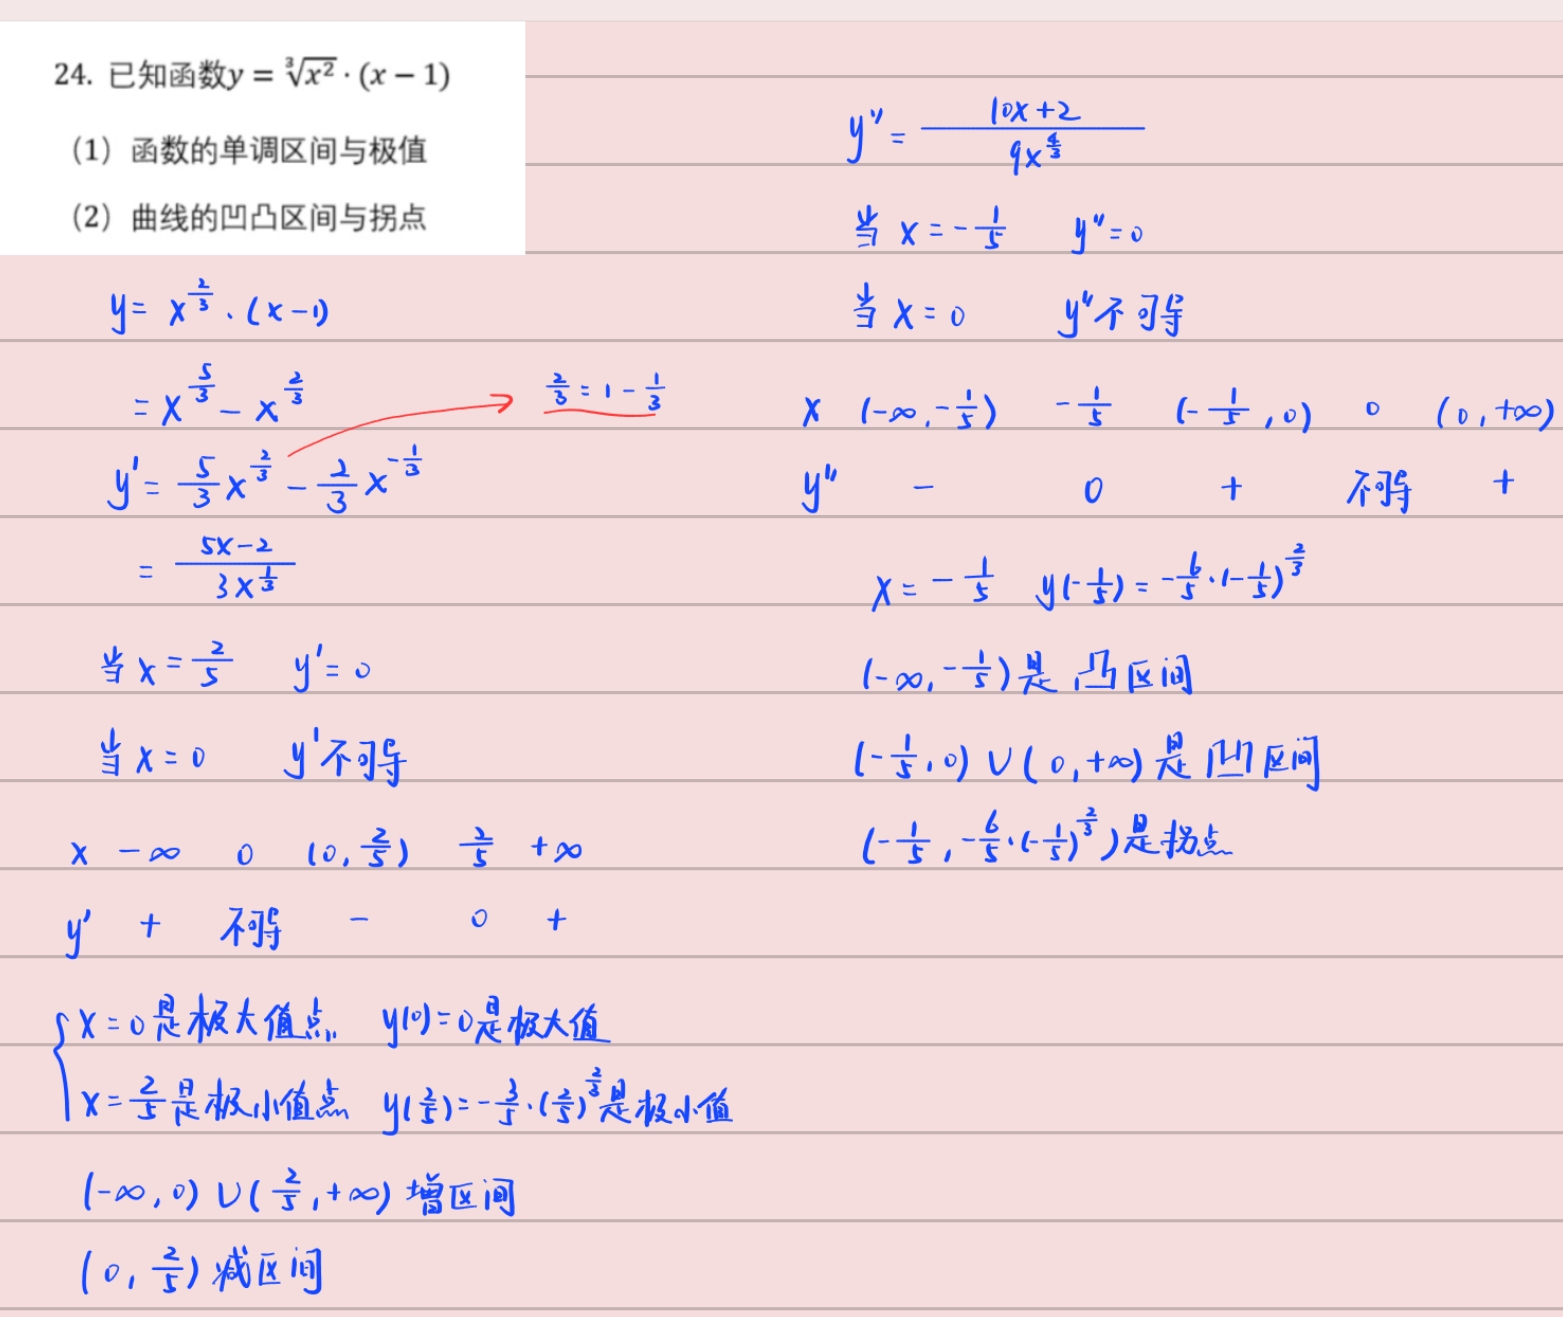 24. 已知函数y = ∛x² · (x − 1)
（1）函数的单调区间与极值
（2）曲线的凹凸区间与拐点
y = x^{2/3} · (x−1)
= x^{5/3} − x^{2/3}
y' = 5/3 x^{2/3} − 2/3 x^{-1/3}
2/3 = 1 − 1/3
= (5x−2)/(3x^{1/3})
当 x = 2/5 y' = 0
当 x = 0 y'不可导
x −∞ 0 (0, 2/5) 2/5 +∞
y' + 不可导 − 0 +
x = 0 是极大值点 y(0) = 0 是极大值
x = 2/5 是极小值点 y(2/5) = −3/5 · (2/5)^{2/3} 是极小值
(−∞, 0) ∪ (2/5, +∞) 增区间
(0, 2/5) 减区间
y'' = (10x+2)/(9x^{4/3})
当 x = −1/5 y'' = 0
当 x = 0 y''不可导
x (−∞, −1/5) −1/5 (−1/5, 0) 0 (0, +∞)
y'' − 0 + 不可导 +
x = −1/5 y(−1/5) = −6/5 · (−1/5)^{2/3}
(−∞, −1/5) 是凸区间
(−1/5, 0) ∪ (0, +∞) 是凹区间
(−1/5, −6/5 · (−1/5)^{2/3}) 是拐点